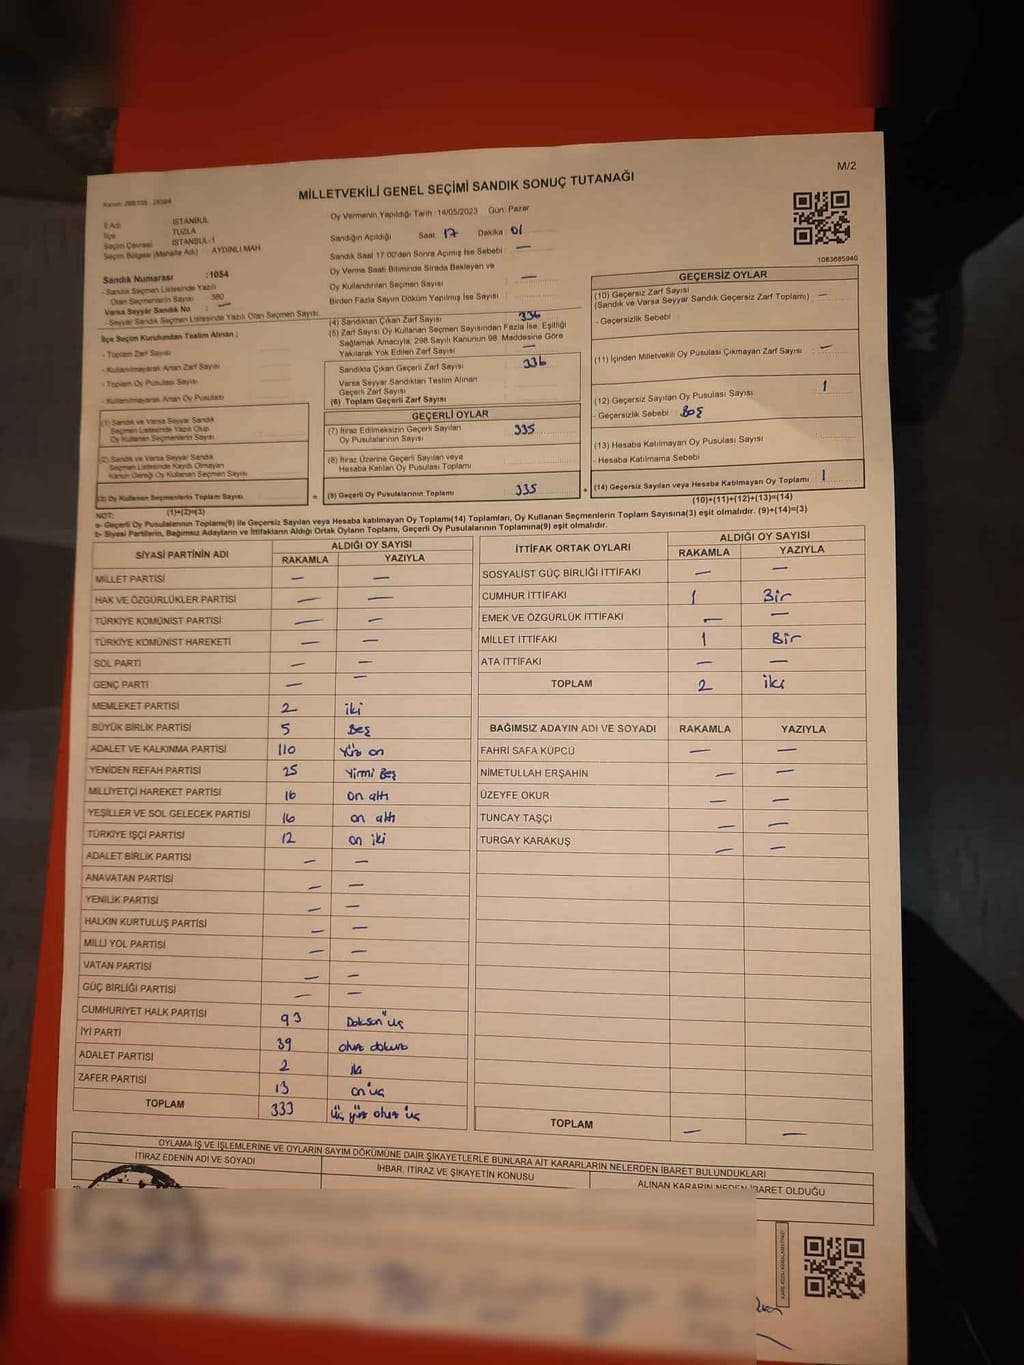 M/2
MİLLETVEKİLİ GENEL SEÇİMİ SANDIK SONUÇ TUTANAĞI
İl Adı İSTANBUL
İlçe TUZLA
Seçim Çevresi İSTANBUL-1
Seçim Bölgesi (Mahalle Adı) AYDINLI MAH
Sandık Numarası :1054
- Sandık Seçmen Listesinde Yazılı
Olan Seçmenlerin Sayısı 380
Varsa Seyyar Sandık No —
- Seyyar Sandık Seçmen Listesinde Yazılı Olan Seçmen Sayısı
Oy Vermenin Yapıldığı Tarih :14/05/2023 Gün: Pazar
Sandığın Açıldığı Saat 17 Dakika 01
Sandık Saat 17:00'den Sonra Açılmış İse Sebebi: —
Oy Verme Saati Bitiminde Sırada Bekleyen ve
Oy Kullandırılan Seçmen Sayısı —
Birden Fazla Sayım Döküm Yapılmış İse Sayısı
1083685940
İlçe Seçim Kurulundan Teslim Alınan ;
- Toplam Zarf Sayısı
- Kullanılmayarak Artan Zarf Sayısı
- Toplam Oy Pusulası Sayısı
- Kullanılmayarak Artan Oy Pusulası
(1) Sandık ve Varsa Seyyar Sandık
Seçmen Listesinde Yazılı Olup
Oy Kullanan Seçmenlerin Sayısı
(2) Sandık ve Varsa Seyyar Sandık
Seçmen Listesinde Kaydı Olmayan
Kanun Gereği Oy Kullanan Seçmen Sayısı
(3) Oy Kullanan Seçmenlerin Toplam Sayısı
(1)+(2)=(3)
(4) Sandıktan Çıkan Zarf Sayısı 336
(5) Zarf Sayısı Oy Kullanan Seçmen Sayısından Fazla İse, Eşitliği
Sağlamak Amacıyla, 298 Sayılı Kanunun 98. Maddesine Göre
Yakılarak Yok Edilen Zarf Sayısı —
Sandıkta Çıkan Geçerli Zarf Sayısı 336
Varsa Seyyar Sandıktan Teslim Alınan
Geçerli Zarf Sayısı
(6) Toplam Geçerli Zarf Sayısı
GEÇERLİ OYLAR
(7) İtiraz Edilmeksizin Geçerli Sayılan
Oy Pusulalarının Sayısı 335
(8) İtiraz Üzerine Geçerli Sayılan veya
Hesaba Katılan Oy Pusulası Toplamı
= (9) Geçerli Oy Pusulalarının Toplamı 335 +
GEÇERSİZ OYLAR
(10) Geçersiz Zarf Sayısı
(Sandık ve Varsa Seyyar Sandık Geçersiz Zarf Toplamı) —
- Geçersizlik Sebebi
(11) İçinden Milletvekili Oy Pusulası Çıkmayan Zarf Sayısı —
(12) Geçersiz Sayılan Oy Pusulası Sayısı 1
- Geçersizlik Sebebi Boş
(13) Hesaba Katılmayan Oy Pusulası Sayısı
- Hesaba Katılmama Sebebi
(14) Geçersiz Sayılan veya Hesaba Katılmayan Oy Toplamı 1
(10)+(11)+(12)+(13)=(14)
NOT:
a- Geçerli Oy Pusulalarının Toplamı(9) ile Geçersiz Sayılan veya Hesaba katılmayan Oy Toplamı(14) Toplamları, Oy Kullanan Seçmenlerin Toplam Sayısına(3) eşit olmalıdır. (9)+(14)=(3)
b- Siyasi Partilerin, Bağımsız Adayların ve İttifakların Aldığı Ortak Oyların Toplamı, Geçerli Oy Pusulalarının Toplamına(9) eşit olmalıdır.
SİYASİ PARTİNİN ADI ALDIĞI OY SAYISI
RAKAMLA YAZIYLA
MİLLET PARTİSİ — —
HAK VE ÖZGÜRLÜKLER PARTİSİ — —
TÜRKİYE KOMÜNİST PARTİSİ — —
TÜRKİYE KOMÜNİST HAREKETİ — —
SOL PARTİ — —
GENÇ PARTİ — —
MEMLEKET PARTİSİ 2 iki
BÜYÜK BİRLİK PARTİSİ 5 Beş
ADALET VE KALKINMA PARTİSİ 110 Yüz on
YENİDEN REFAH PARTİSİ 25 Yirmi Beş
MİLLİYETÇİ HAREKET PARTİSİ 16 on altı
YEŞİLLER VE SOL GELECEK PARTİSİ 16 on altı
TÜRKİYE İŞÇİ PARTİSİ 12 on iki
ADALET BİRLİK PARTİSİ — —
ANAVATAN PARTİSİ — —
YENİLİK PARTİSİ — —
HALKIN KURTULUŞ PARTİSİ — —
MİLLİ YOL PARTİSİ — —
VATAN PARTİSİ — —
GÜÇ BİRLİĞİ PARTİSİ — —
CUMHURİYET HALK PARTİSİ 93 Doksan üç
İYİ PARTİ 39 otuz dokuz
ADALET PARTİSİ 2 iki
ZAFER PARTİSİ 13 on üç
TOPLAM 333 üç yüz otuz üç
İTTİFAK ORTAK OYLARI ALDIĞI OY SAYISI
RAKAMLA YAZIYLA
SOSYALİST GÜÇ BİRLİĞİ İTTİFAKI — —
CUMHUR İTTİFAKI 1 Bir
EMEK VE ÖZGÜRLÜK İTTİFAKI — —
MİLLET İTTİFAKI 1 Bir
ATA İTTİFAKI — —
TOPLAM 2 iki
BAĞIMSIZ ADAYIN ADI VE SOYADI RAKAMLA YAZIYLA
FAHRİ SAFA KÜPCÜ — —
NİMETULLAH ERŞAHİN — —
ÜZEYFE OKUR — —
TUNCAY TAŞÇI — —
TURGAY KARAKUŞ — —
TOPLAM — —
OYLAMA İŞ VE İŞLEMLERİNE VE OYLARIN SAYIM DÖKÜMÜNE DAİR ŞİKAYETLERLE BUNLARA AİT KARARLARIN NELERDEN İBARET BULUNDUKLARI
İTİRAZ EDENİN ADI VE SOYADI İHBAR, İTİRAZ VE ŞİKAYETİN KONUSU ALINAN KARARIN NEDEN İBARET OLDUĞU